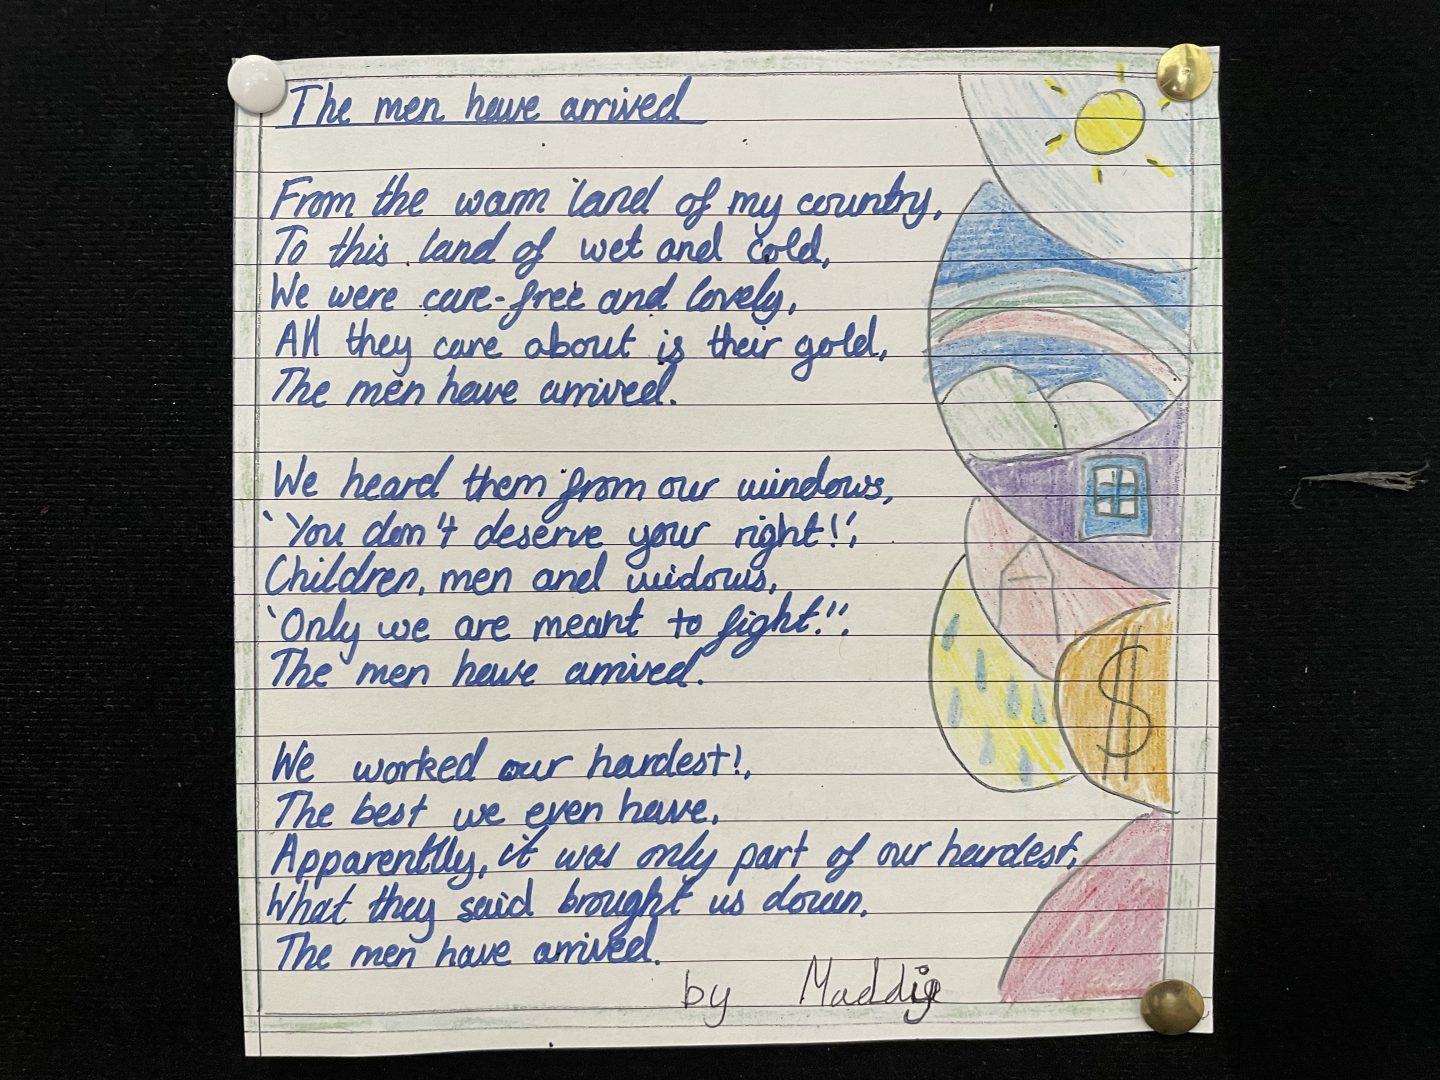 The men have arrived
From the warm land of my country,
To this land of wet and cold,
We were care-free and lovely,
All they care about is their gold,
The men have arrived.
We heard them from our windows,
'You don't deserve your right!',
Children, men and widows,
'Only we are meant to fight!',
The men have arrived.
We worked our hardest!,
The best we even have,
Apparentlly, it was only part of our hardest,
What they said brought us down,
The men have arrived.
by Maddie
$